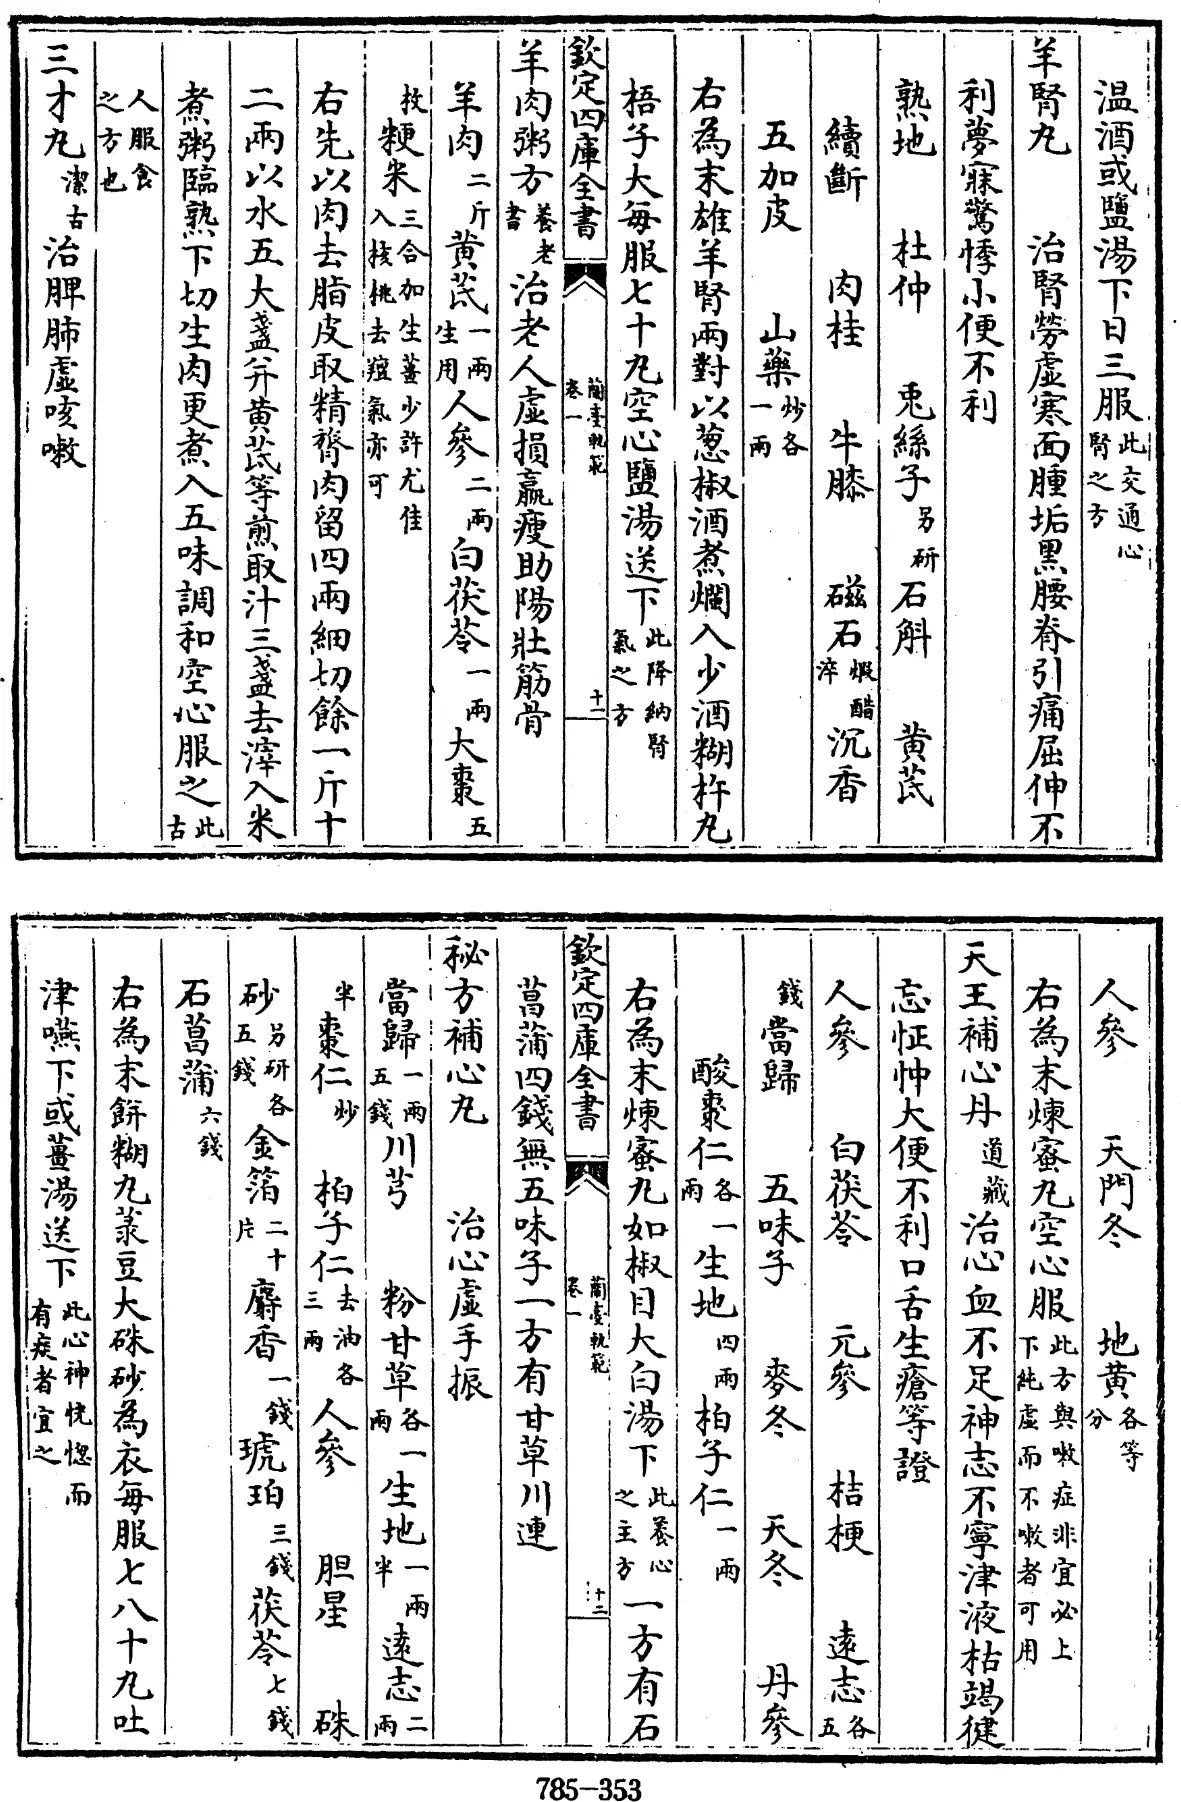 温酒或鹽湯下日三服此交通心腎之方
羊腎丸　治腎勞虛寒面腫垢黑腰脊引痛屈伸不
利夢寐驚悸小便不利
熟地　杜仲　兎絲子另研石斛　黄芪
續斷　肉桂　牛膝　磁石煅醋淬沉香
五加皮　山藥炒各一兩
右為末雄羊腎兩對以葱椒酒煮爛入少酒糊杵丸
梧子大每服七十丸空心鹽湯送下此降納腎氣之方
欽定四庫全書　蘭臺軌範卷一　十一
羊肉粥方養老書治老人虛損羸瘦助陽壯筋骨
羊肉二斤黄芪一兩生用人參二兩白茯苓一兩大棗五
枚粳米三合加生薑少許尤佳入核桃去羶氣亦可
右先以肉去脂皮取精膂肉留四兩細切餘一斤十
二兩以水五大盞并黄芪等煎取汁三盞去滓入米
煮粥臨熟下切生肉更煮入五味調和空心服之此古
人服食之方也
三才丸潔古治脾肺虛咳嗽
人參　天門冬　地黄各等分
右為末煉蜜丸空心服此方與嗽症非宜必上下純虛而不嗽者可用
天王補心丹道藏治心血不足神志不寧津液枯竭健
忘怔忡大便不利口舌生瘡等證
人參　白茯苓　元參　桔梗　遠志各五
錢當歸　五味子　麥冬　天冬　丹參
酸棗仁各一兩生地四兩柏子仁一兩
右為末煉蜜丸如椒目大白湯下此養心之主方一方有石
欽定四庫全書　蘭臺軌範卷一　十二
菖蒲四錢無五味子一方有甘草川連
秘方補心丸　治心虛手振
當歸一兩五錢川芎　粉甘草各一兩生地一兩半遠志二兩
半棗仁炒　柏子仁去油各三兩人參　胆星　硃
砂另研各五錢金箔二十片麝香一錢琥珀三錢茯苓七錢
石菖蒲六錢
右為末餅糊丸菉豆大硃砂為衣每服七八十丸吐
津嚥下或薑湯送下此心神恍惚而有痰者宜之
785-353